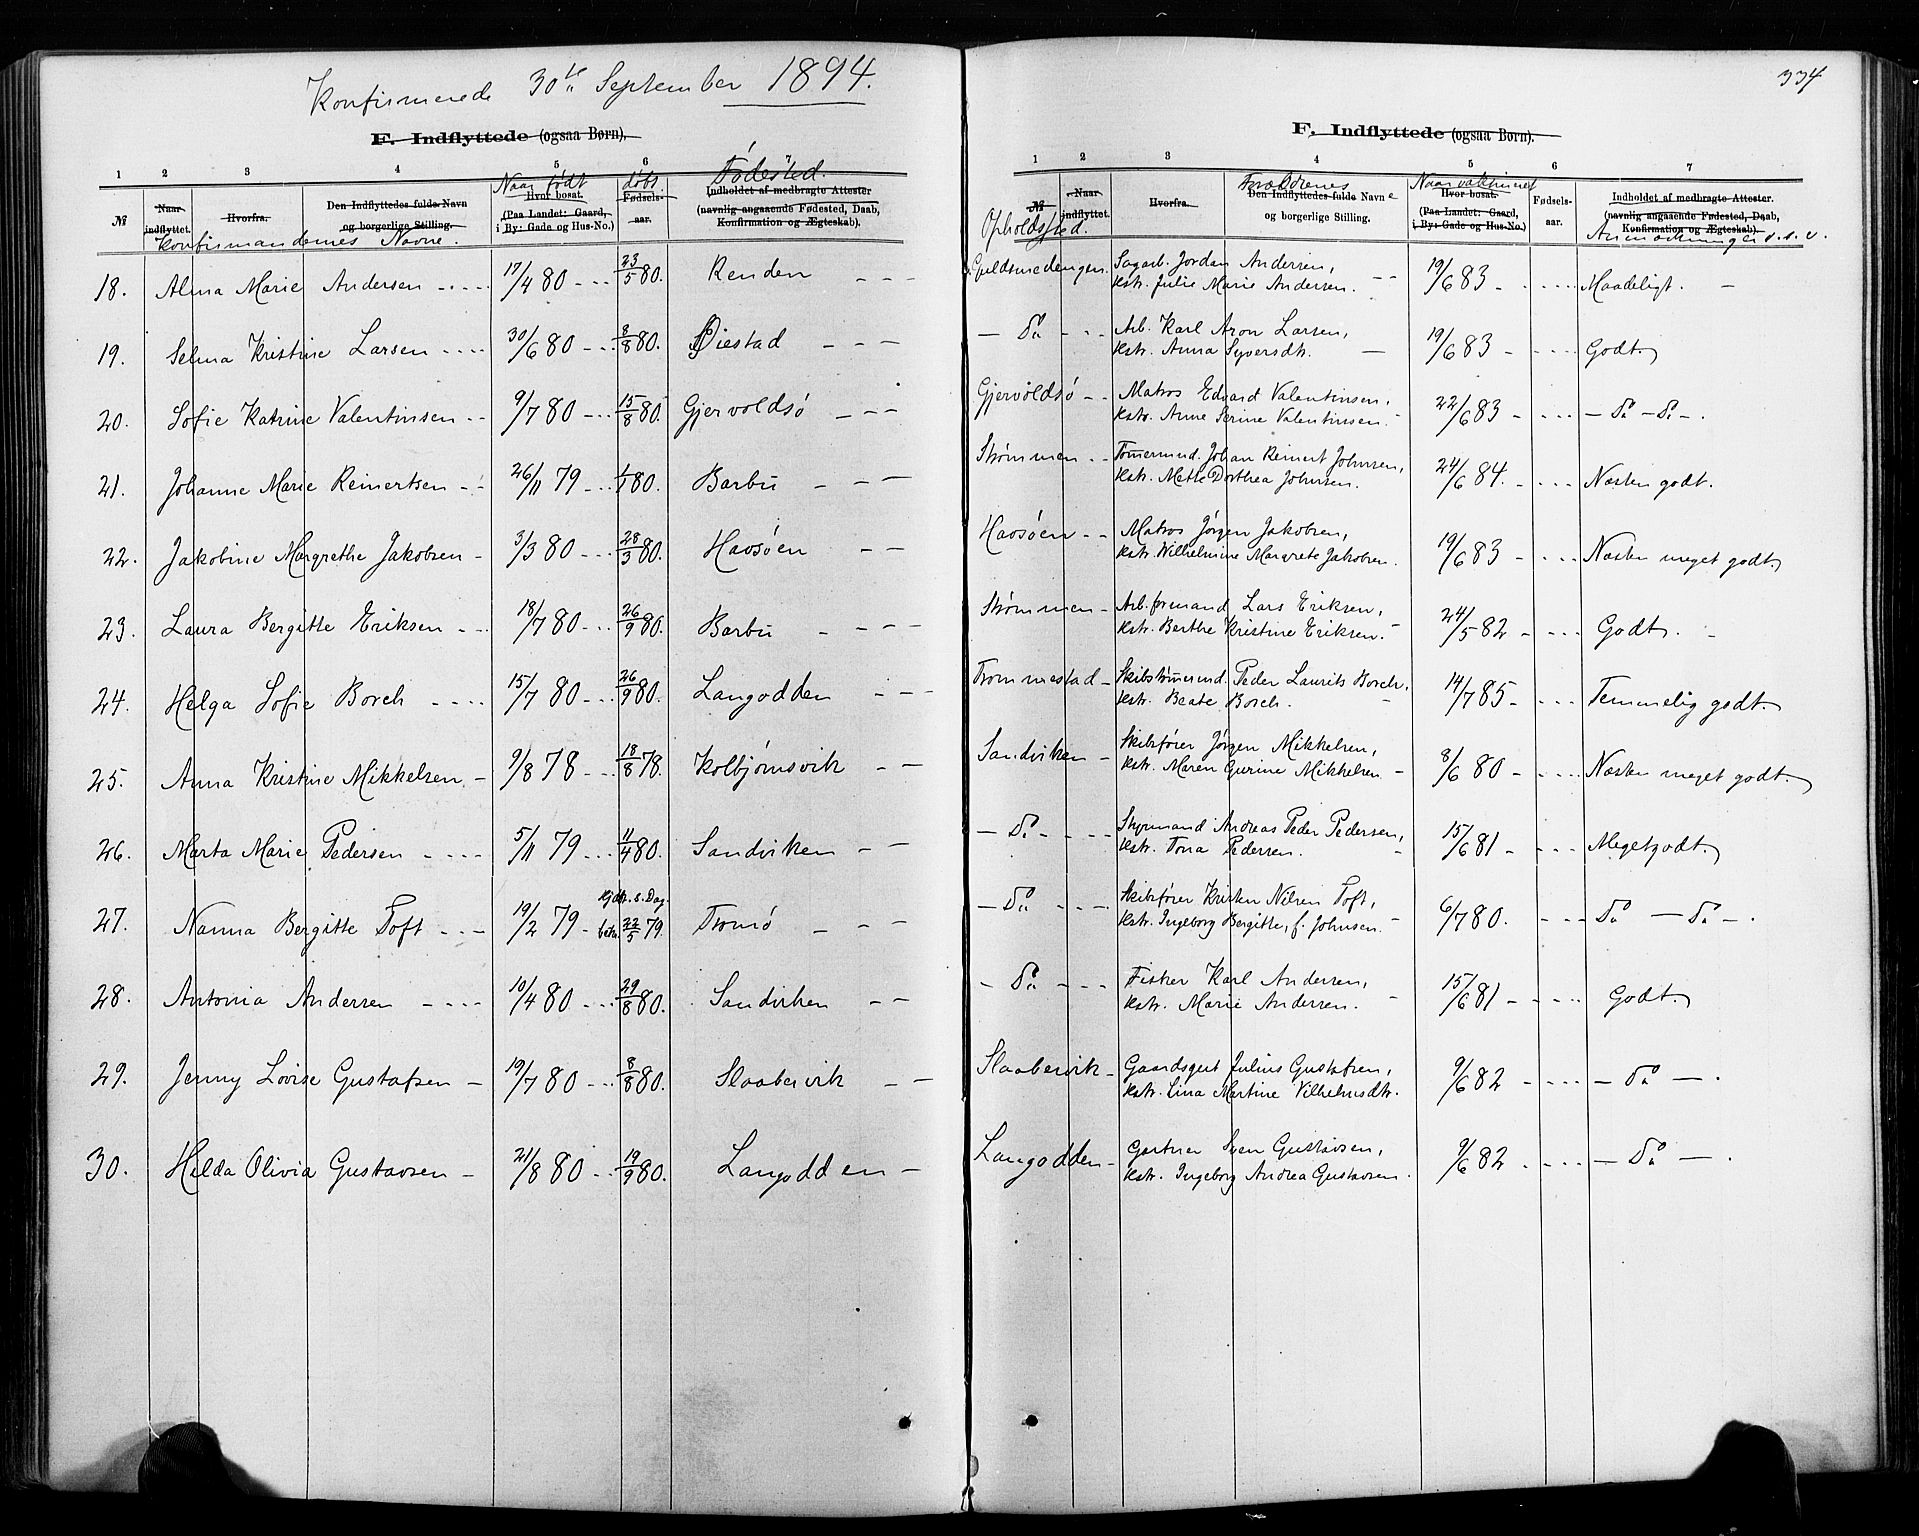 Konfirmerede 30te September 1894.
F. Indflyttede (ogsaa Børn).
1 2 3 4 5 6 7
Naar født døbt Fødested.
№ Naar indflyttet. Hvorfra. Den Indflyttedes fulde Navn og borgerlige Stilling. Hvor bosat. (Paa Landet: Gaard, i By: Gade og Hus-No.) Fødsels-aar. Indholdet af medbragte Attester (navnlig angaaende Fødested, Daab, Konfirmation og Ægteskab).
Konfirmandernes Navne.
18. Alma Marie Andersen 17/4 80 23/5 80. Renden
19. Selma Kristine Larsen 30/6 80 8/8 80. Øiestad
20. Sofie Katrine Valentinsen 9/7 80 15/8 80. Gjervoldsø
21. Johanne Marie Reinertsen 26/11 79 1/1 80. Barbu
22. Jakobine Margrethe Jakobsen 3/3 80 28/3 80. Havsøen
23. Laura Bergitte Eriksen 18/7 80 26/9 80. Barbu
24. Helga Sofie Borch 15/7 80 26/9 80. Langodden
25. Anna Kristine Mikkelsen 9/8 78 18/8 78. Kolbjørnsvik
26. Marta Marie Pedersen 5/11 79 11/4 80. Sandviken
27. Nanna Bergitte Toft 19/2 79 s. Dag. 22/5 79. Tromø
28. Antonia Andersen 10/4 80 29/8 80. Sandviken
29. Jenny Lovise Gustafsen 19/7 80 8/8 80. Slaabervik
30. Hilda Olivia Gustavsen 21/8 80 19/9 80. Langodden
334
F. Indflyttede (ogsaa Børn).
1 2 3 4 5 6 7
Forældrenes Naar vaksineret
№ Naar indflyttet. Hvorfra. Den Indflyttedes fulde Navne og borgerlige Stilling. Hvor bosat. (Paa Landet: Gaard, i By: Gade og Hus-No.) Fødsels-aar. Indholdet af medbragte Attester. (navnlig angaaende Fødested, Daab, Konfirmation og Ægteskab).
Opholdssted. Anmærkninger o.s.v.
Guldsmedengen. Sagarb. Jordan Andersen,
Kstr. Julie Marie Andersen. 19/6 83 Maadeligt.
Do Arb. Karl Aron Larsen,
Kstr. Anna Syversdtr. 19/6 83 Godt.
Gjervoldsø Matros Edvard Valentinsen,
Kstr. Anne Serine Valentinsen. 22/6 83 Do Do
Strømmen Tømermd. Johan Reinert Johnsen,
Kstr. Mette Dorthea Johnsen. 24/6 84. Næsten godt.
Havsøen Matros Jørgen Jakobsen,
Kstr. Wilhelmine Margrete Jakobsen. 19/6 83 Næsten meget godt.
Strømmen Arb.formand Lars Eriksen,
Kstr. Berthe Kristine Eriksen. 24/5 82 Godt.
Trommestad Skibstømermd. Peder Laurits Borch,
Kstr. Beate Borch. 14/7 85 Temmelig godt.
Sandviken Skibsfører Jørgen Mikkelsen,
Kstr. Maren Gurine Mikkelsen 8/6 80 Næsten meget godt.
Do Styrmand Andreas Peder Pedersen,
Kstr. Tona Pedersen. 15/6 81 Meget godt.
Do Skibsfører Kristen Nilsen Toft,
Kstr. Ingeborg Bergitte, f. Johnsen. 6/7 80. Do Do
Do Fisker Karl Andersen,
Kstr. Marie Andersen. 15/6 81 Godt.
Slaabervik Gaardsgut Julius Gustafsen,
Kstr. Lina Martine Vilhelmsdtr. 9/6 82 Do
Langodden Gartner Sven Gustavsen,
Kstr. Ingeborg Andrea Gustavsen. 9/6 82 Do